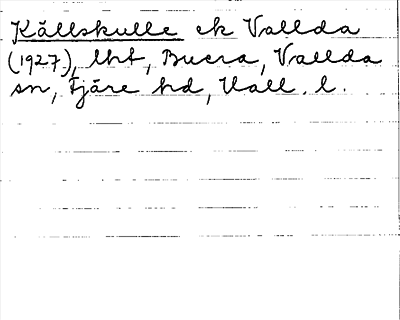 Källskulle ek Vallda
(1927), lht, Buera, Vallda
sn, Fjäre hd, Hall. l.